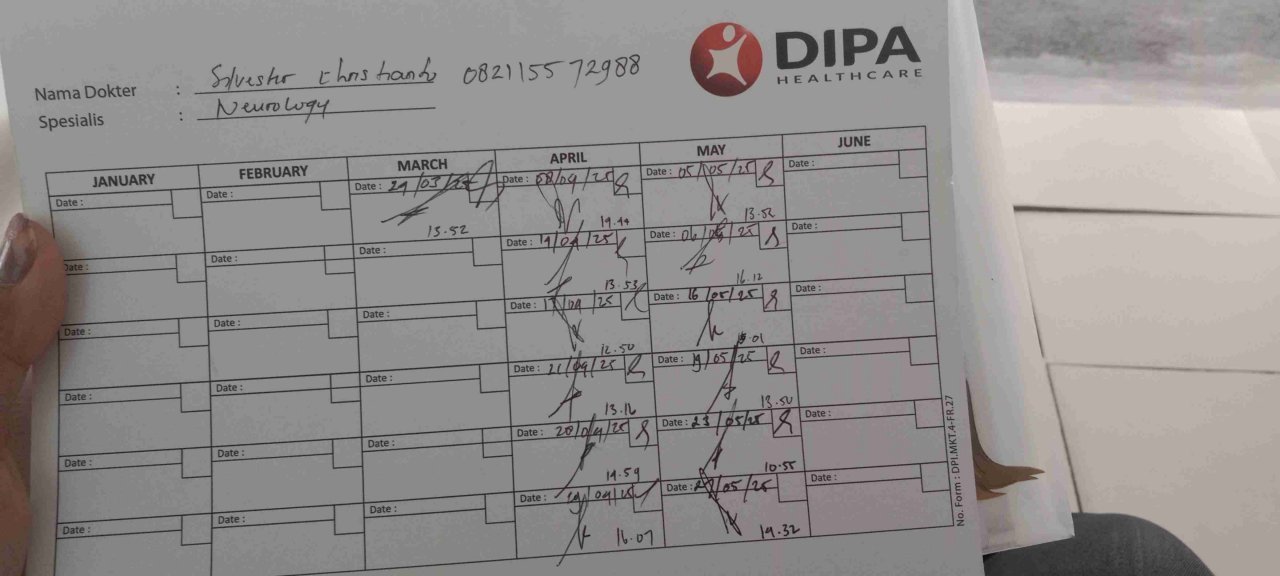 DIPA
HEALTHCARE
Nama Dokter : Silvester Christianto 082115572988
Spesialis : Neurology
JANUARY FEBRUARY MARCH APRIL MAY JUNE
Date : Date : Date : 24/03/25 Date : 08/04/25 Date : 05/05/25 Date :
13.52 14.44 13.52
Date : Date : Date : 14/04/25 Date : 06/05/25 Date :
13.53 16.12
Date : Date : Date : Date : 17/04/25 Date : 16/05/25 Date :
12.50 15.01
Date : Date : Date : Date : 21/04/25 Date : 19/05/25 Date :
13.16 13.50
Date : Date : Date : Date : 28/04/25 Date : 23/05/25 Date :
14.59 10.55
Date : Date : Date : Date : 29/04/25 Date : 27/05/25 Date :
16.07 19.32
No. Form : DPI.MKT.4-FR.27